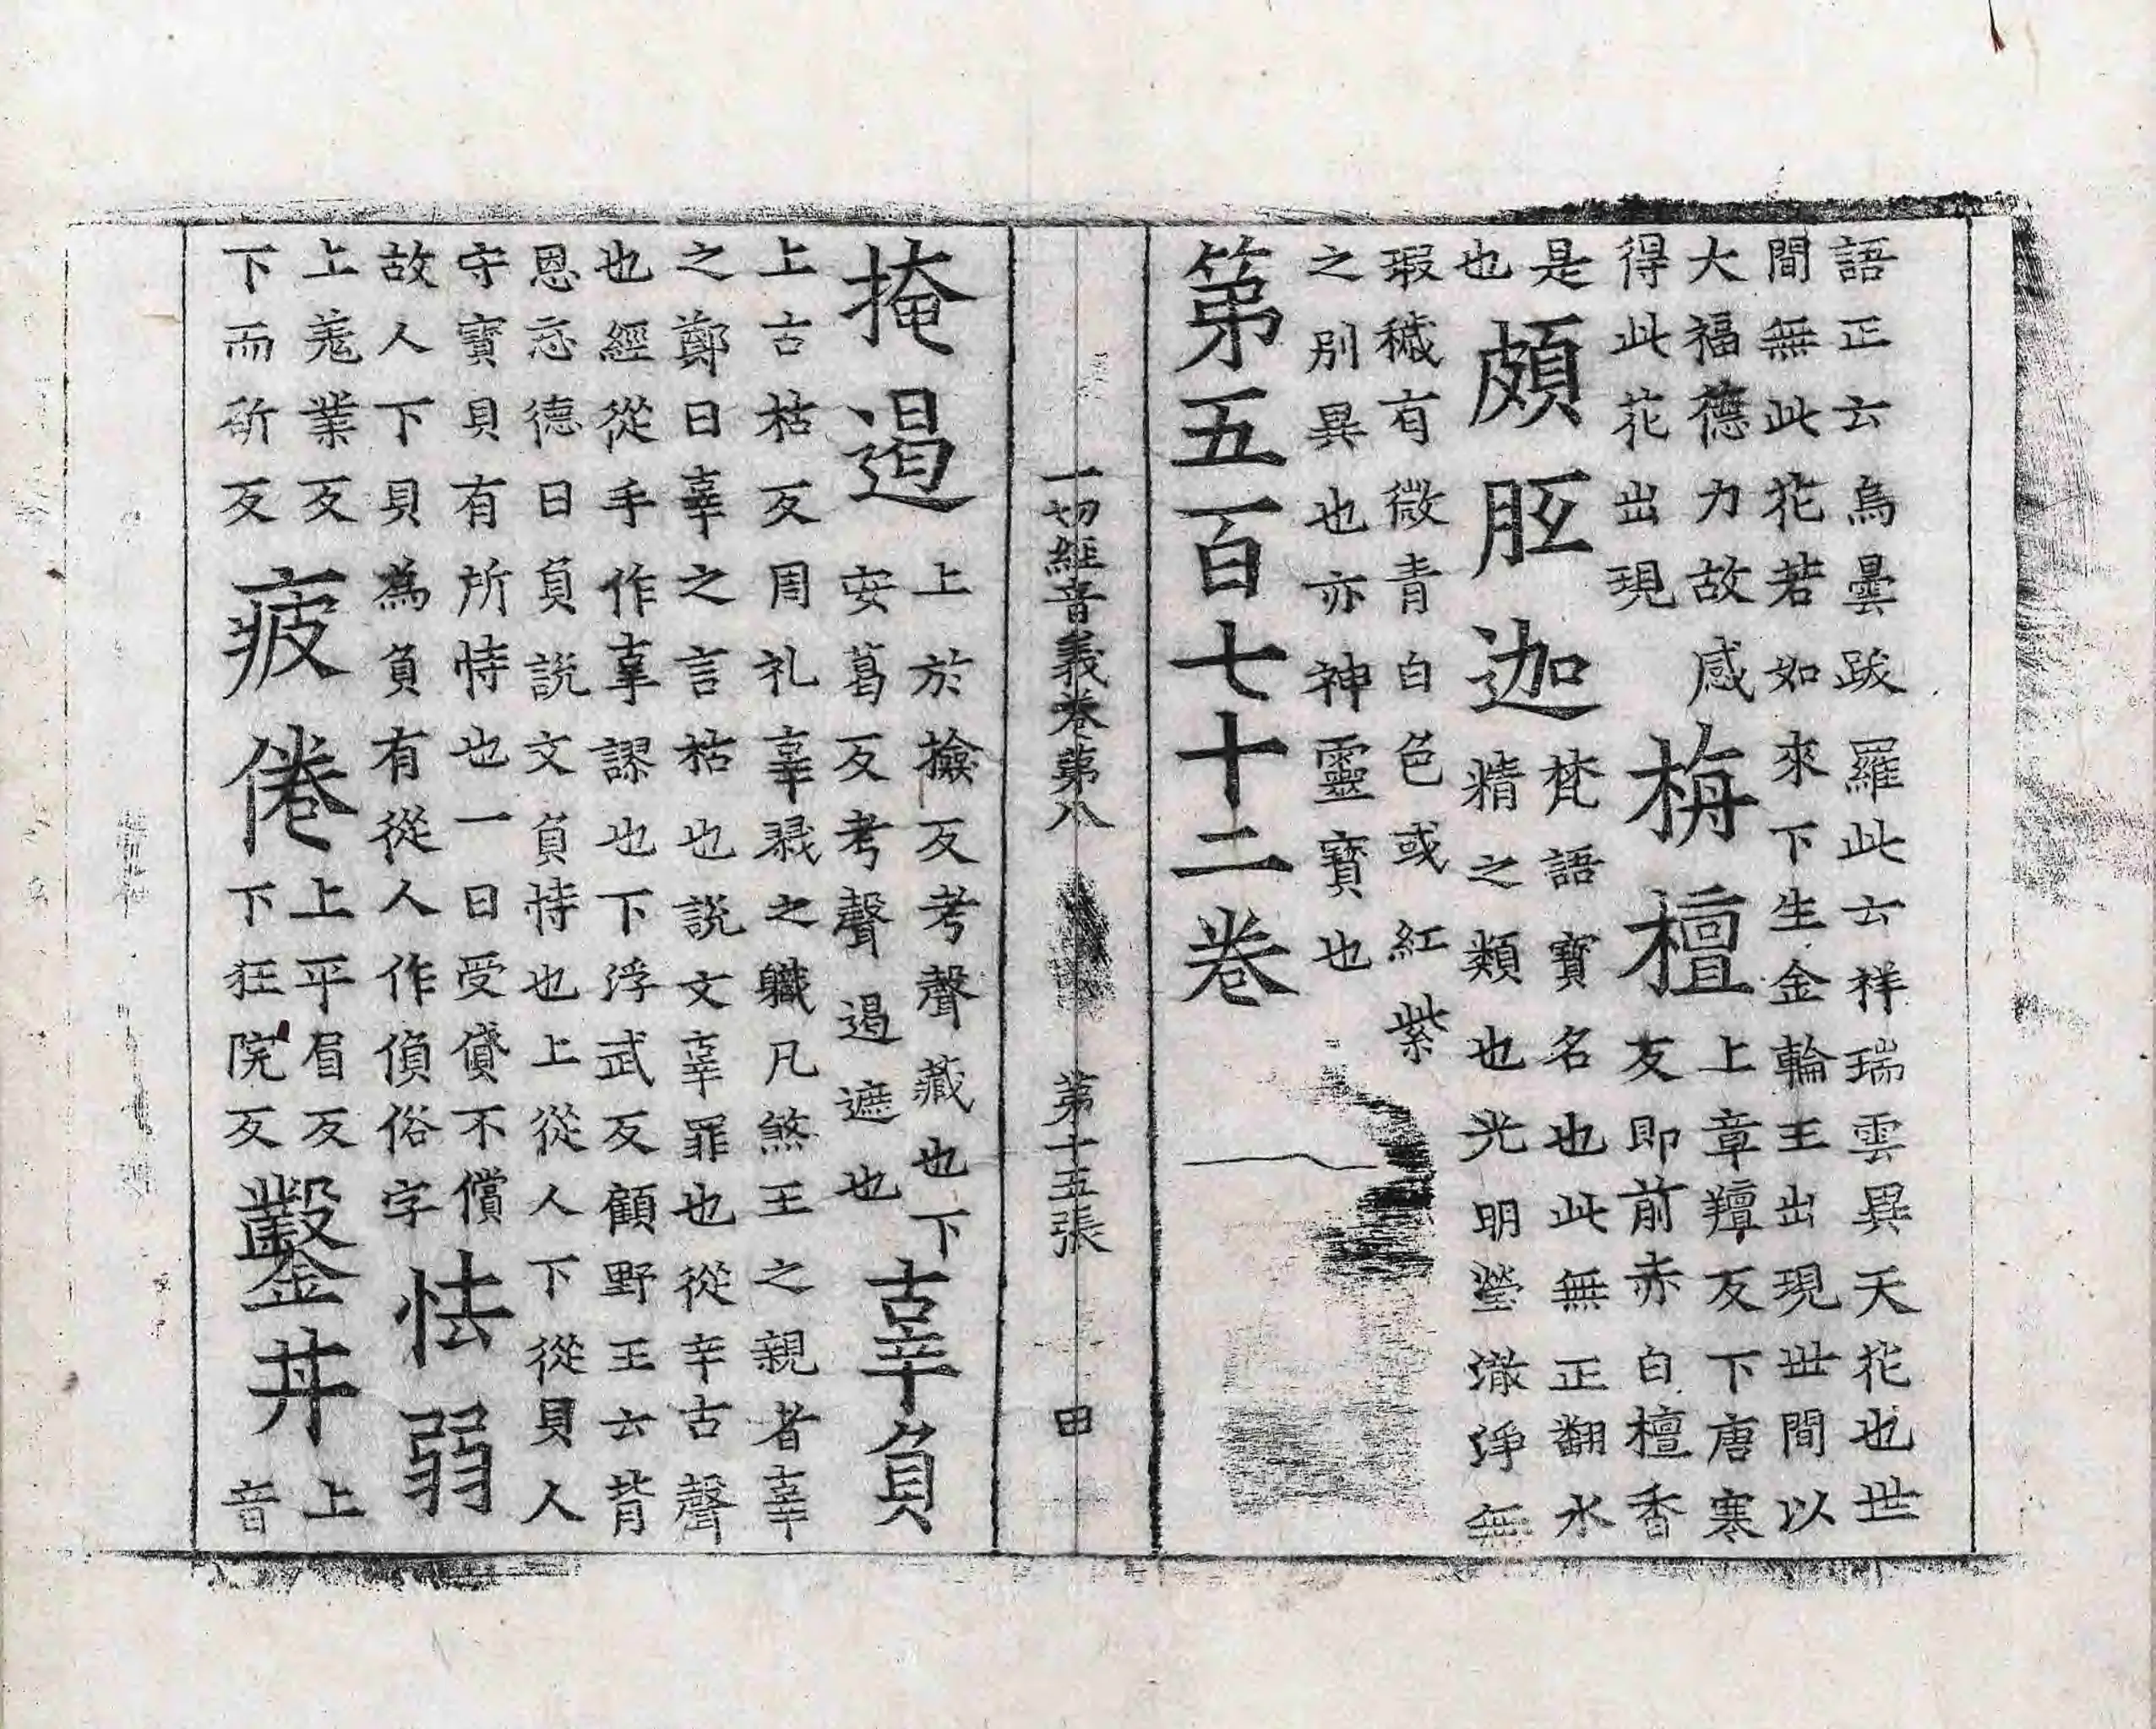 語正云烏曇跋羅此云祥瑞雲異天花也世
間無此花若如來下生金輪王出現世間以
大福德力故感
得此花出現
栴檀
上章羶反下唐寒
反即前赤白檀香
是
也
頗胝迦
梵語寶名也此無正翻水
精之類也光明瑩澈淨無
瑕穢有微青白色或紅紫
之別異也亦神靈寶也
第五百七十二卷
一切經音義卷第八 第十五張 田
掩遏
上於撿反考聲藏也下
安葛反考聲遏遮也
辜負
上古枯反周礼辜磔之軄凡煞王之親者辜
之鄭曰辜之言枯也說文辜罪也從辛古聲
也經從手作辜謬也下浮武反顧野王云背
恩忘德曰負說文負恃也上從人下從貝人
守寶貝有所恃也一曰受貸不償
故人下貝為負有從人作偩俗字
怯弱
上羗業反
下而斫反
疲倦
上平眉反
下狂院反
鑿井
上
音